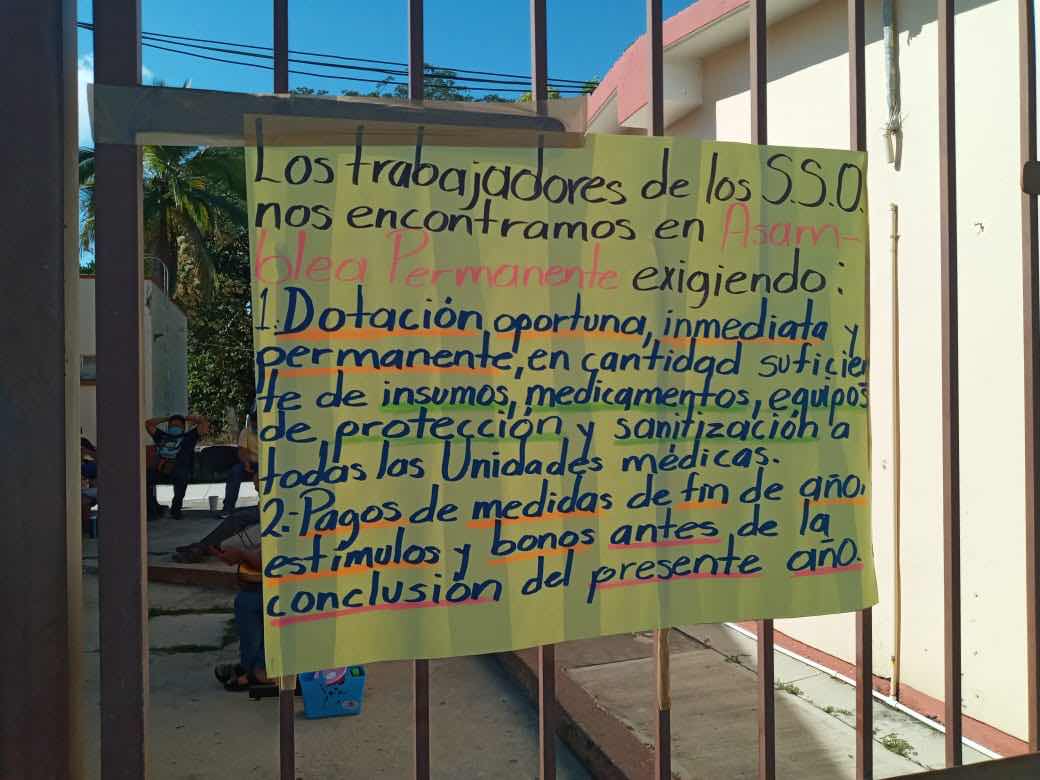 Los trabajadores de los S.S.O.
nos encontramos en Asam-
blea Permanente exigiendo:
1.-Dotación oportuna, inmediata y
permanente, en cantidad suficien
te de insumos, medicamentos, equipos
de protección y sanitización a
todas las Unidades médicas.
2.-Pagos de medidas de fin de año,
estímulos y bonos antes de la
conclusión del presente año.